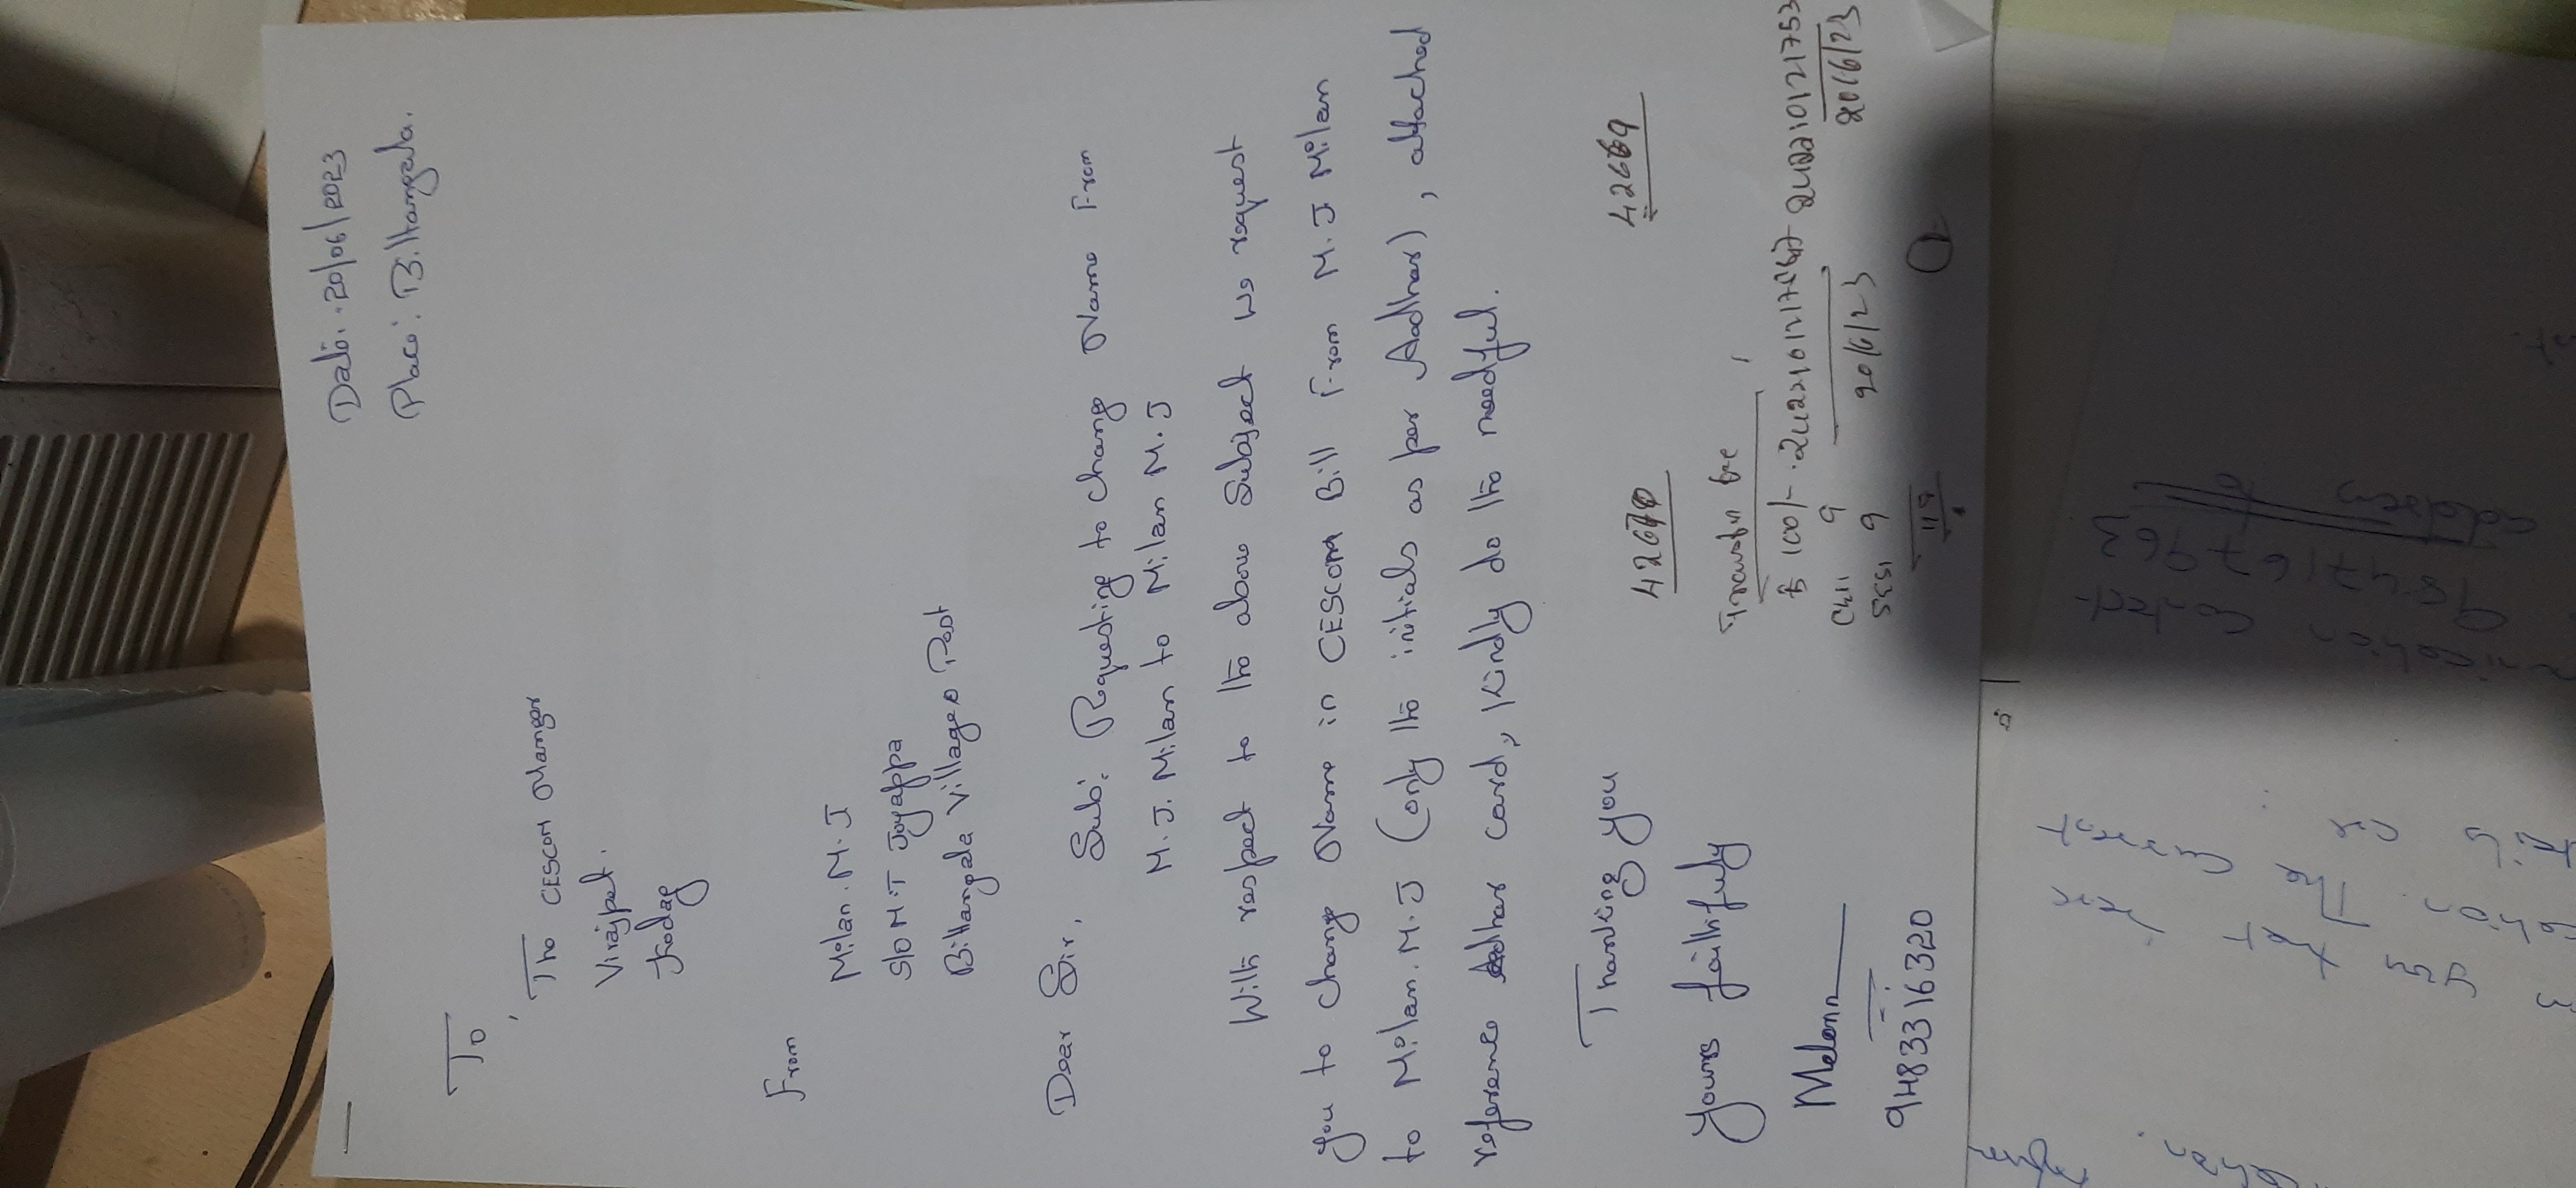 Date: 20/06/2023
Place: Bittangala.
To,
The CESCOM Manger
Virajpet.
Kodag
From
Milan.M.J
S/o M.T Joyappa
Bittangala Village & Post
Dear Sir,
Sub: Requesting to change Name From
M.J. Milan to Milan M.J
With respect to the above Subject we request
you to change Name in CESCOM Bill From M.J Milan
to Milan.M.J (only the initials as per Aadhar), attached
reference Adhar card, Kindly do the needful.
Thanking you
Yours faithfully
Milan
9483316320
42669
Transfer fee
100/-
9
9
20/6/23
20/6/23
9847167963